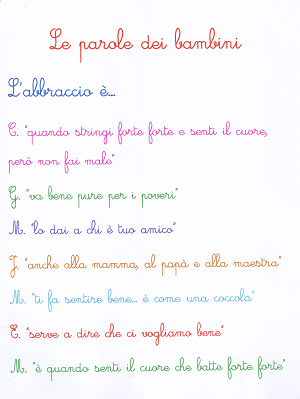 Le parole dei bambini
L'abbraccio è...
C. "quando stringi forte forte e senti il cuore,
però non fai male"
G. "va bene pure per i poveri"
M. "lo dai a chi è tuo amico"
J. "anche alla mamma, al papà e alla maestra"
M. "ti fa sentire bene... è come una coccola"
E. "serve a dire che ci vogliamo bene"
M. "è quando senti il cuore che batte forte forte"